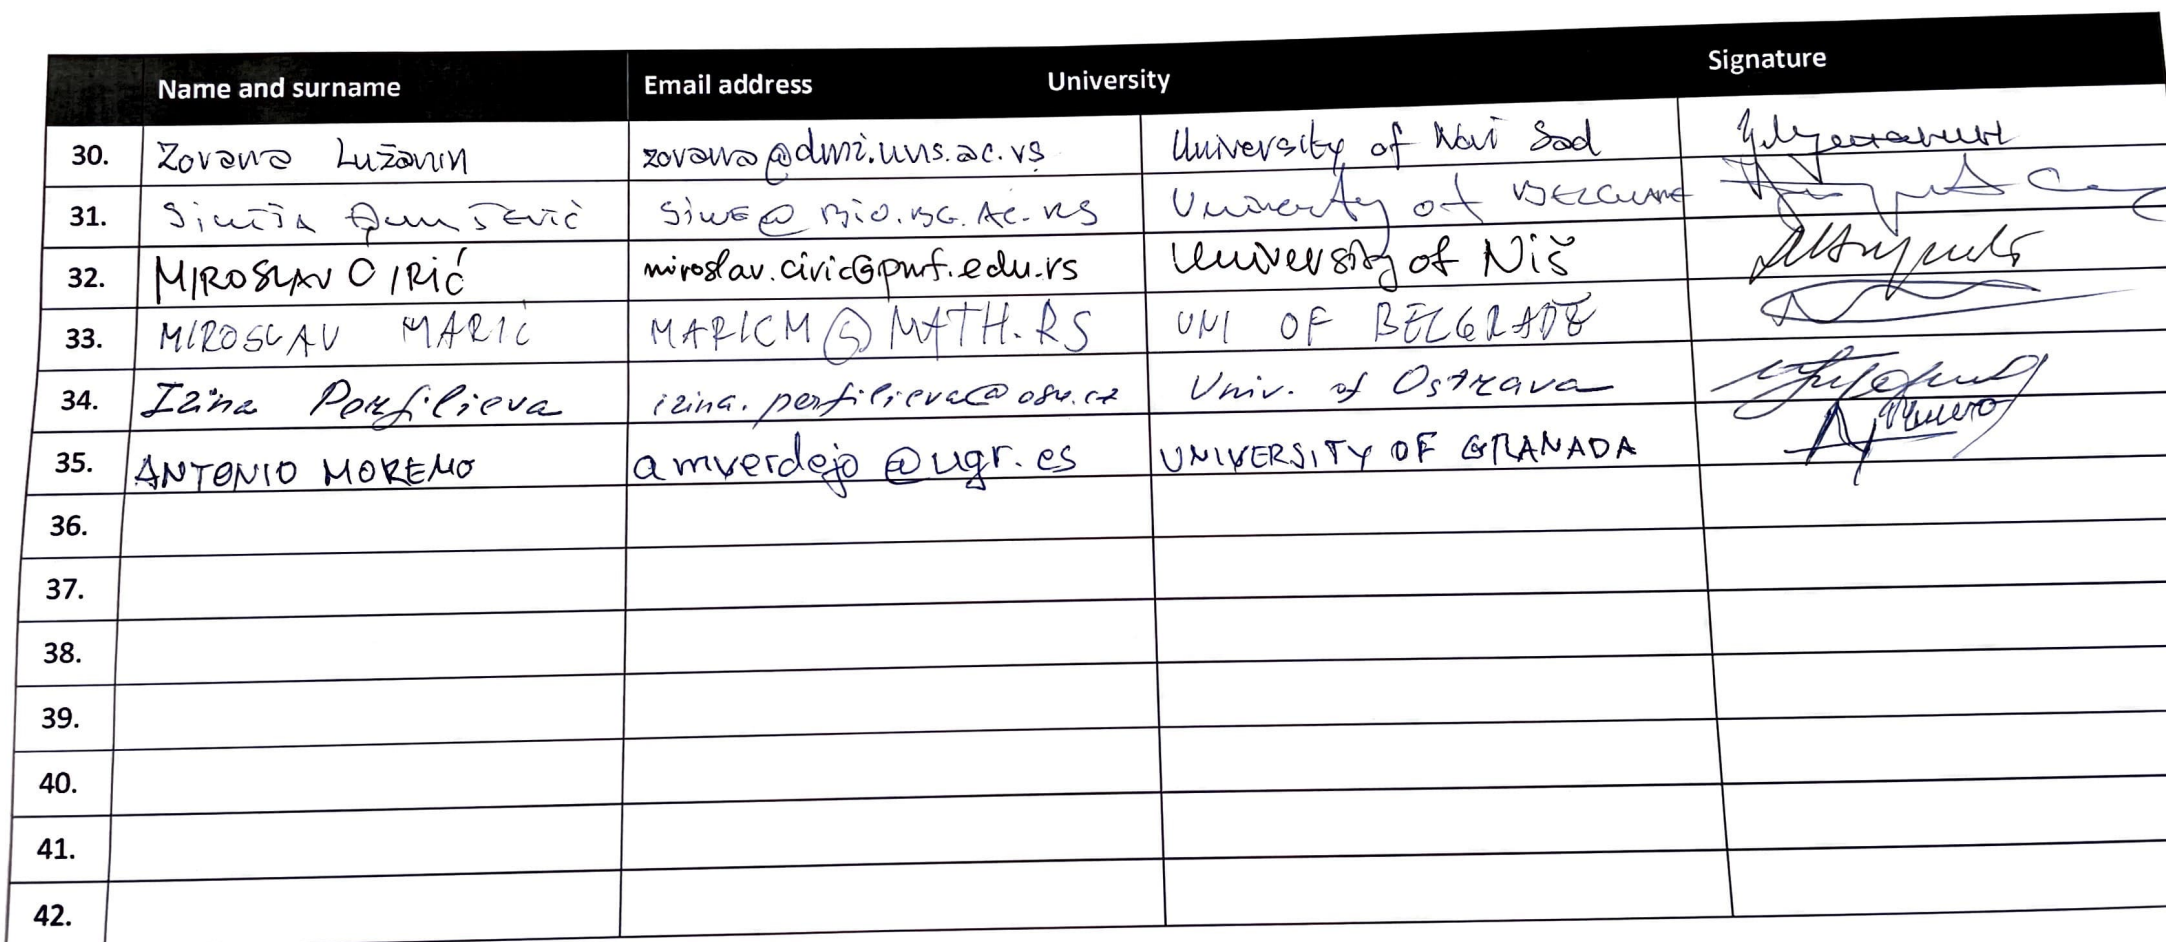 Name and surname Email address University Signature
30. Zorana Lužanin zorana@dmi.uns.ac.rs University of Novi Sad
31. Siniša @ BIO.BG.AC.RS University of
32. MIROSLAV ĆIRIĆ miroslav.ciric@pmf.edu.rs University of Niš
33. MIROSLAV MARIĆ MARICM@MATH.RS UNI OF BELGRADE
34. Irina Perfilieva irina.perfilieva@osu.cz Univ. of Ostrava
35. ANTONIO MORENO amverdejo@ugr.es UNIVERSITY OF GRANADA
36.
37.
38.
39.
40.
41.
42.